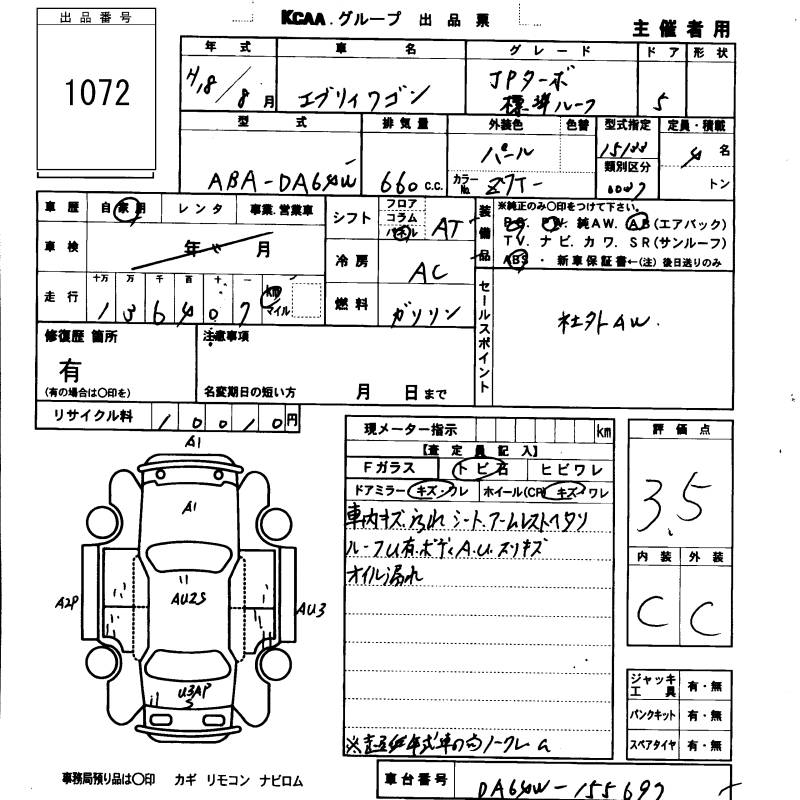 出品番号
1072
KCAA.グループ 出品票
主催者用
年式 車名 グレード ドア 形状
H18/8月 エブリィワゴン JPターボ 標準ルーフ 5
型式 排気量 外装色 色替 型式指定 定員・積載
ABA-DA64W 660 C.C. パール 4名
カラーNo. Z7T- 類別区分 トン
車歴 自家用 レンタ 事業.営業車
車検 年 月
走行 十万 万 千 百 十 一
136407 km マイル
シフト フロア コラム パネル AT
冷房 AC
燃料 ガソリン
装備品 ※純正のみ〇印をつけて下さい。
PS. PW. 純AW. AB(エアバック)
TV. ナビ. カワ. SR(サンルーフ)
ABS ・ 新車保証書←(注) 後日送りのみ
セールスポイント
社外AW.
修復歴 箇所
有
(有の場合は〇印を)
注意事項
名変期日の短い方 月 日まで
リサイクル料 10010円
現メーター指示 km
【査定員記入】
Fガラス トビ石 ヒビワレ
ドアミラー キズ・ワレ ホイール(CP) キズ・ワレ
車内キズ.汚れ シート.アームレストヘタリ
ルーフU有.ボディA.U.スリキズ
オイル漏れ
※超低年式車の為ノークレーム
評価点
3.5
内装 外装
C C
ジャッキ工具 有・無
パンクキット 有・無
スペアタイヤ 有・無
A1
A1
AU2S
A2P
AU3
U3AP
S
事務局預り品は〇印 カギ リモコン ナビロム
車台番号 DA64W-155697